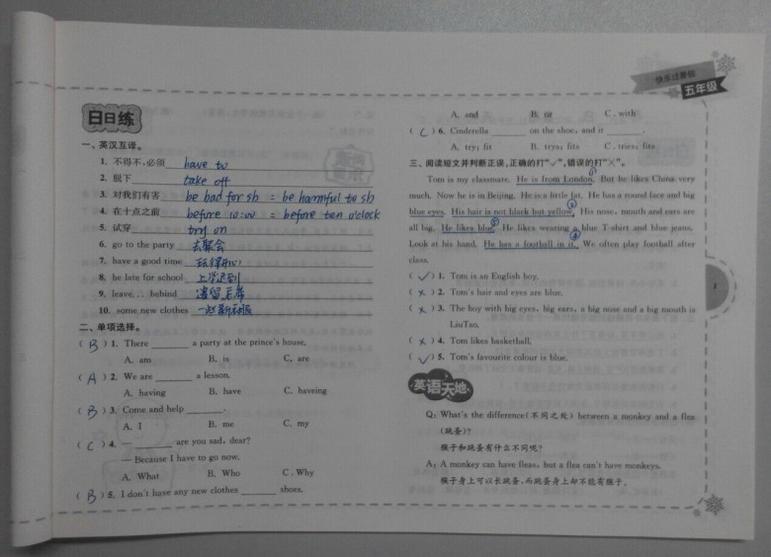 快乐过暑假
五年级
日日练
一、英汉互译。
1. 不得不,必须 have to
2. 脱下 take off
3. 对我们有害 be bad for sb = be harmful to sb
4. 在十点之前 before 10:00 = before ten o'clock
5. 试穿 try on
6. go to the party 去聚会
7. have a good time 玩得开心
8. be late for school 上学迟到
9. leave... behind 遗留
10. some new clothes 一些新衣服
二、单项选择。
( B ) 1. There ______ a party at the prince's house.
A. am B. is C. are
( A ) 2. We are ______ a lesson.
A. having B. have C. haveing
( B ) 3. Come and help ______.
A. I B. me C. my
( C ) 4. — ______ are you sad, dear?
— Because I have to go now.
A. What B. Who C. Why
( B ) 5. I don't have any new clothes ______ shoes.
A. and B. or C. with
( C ) 6. Cinderella ______ on the shoe, and it ______.
A. try; fit B. trys; fits C. tries; fits
三、阅读短文并判断正误,正确的打"✓",错误的打"×"。
Tom is my classmate. He is from London. But he likes China very
much. Now he is in Beijing. He is a little fat. He has a round face and big
blue eyes. His hair is not black but yellow. His nose, mouth and ears are
all big. He likes blue. He likes wearing a blue T-shirt and blue jeans.
Look at his hand. He has a football in it. We often play football after
class.
( ✓ ) 1. Tom is an English boy.
( × ) 2. Tom's hair and eyes are blue.
( × ) 3. The boy with big eyes, big ears, a big nose and a big mouth is
LiuTao.
( × ) 4. Tom likes basketball.
( ✓ ) 5. Tom's favourite colour is blue.
英语天地
Q: What's the difference(不同之处) between a monkey and a flea
(跳蚤)?
猴子和跳蚤有什么不同呢?
A: A monkey can have fleas, but a flea can't have monkeys.
猴子身上可以长跳蚤,而跳蚤身上却不能有猴子。
1